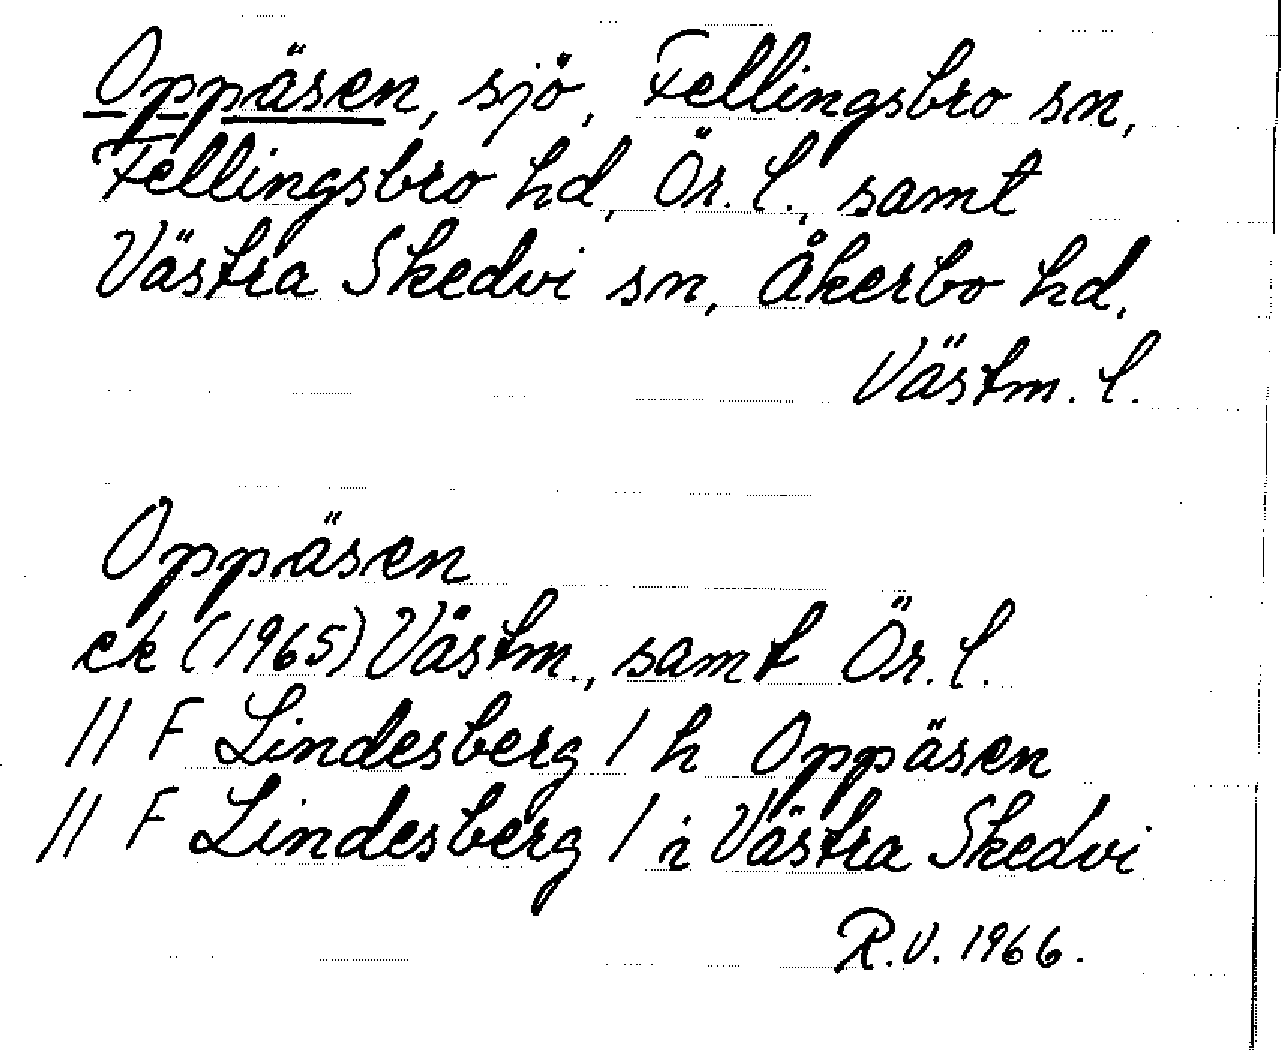 Oppäsen, sjö, Fellingsbro sn,
Fellingsbro hd, Ör. l., samt
Västra Skedvi sn, Åkerbo hd,
Västm. l.
Oppäsen
ek (1965) Västm., samt Ör. l.
// F Lindesberg / h Oppäsen
// F Lindesberg / i Västra Skedvi
R.V. 1966.